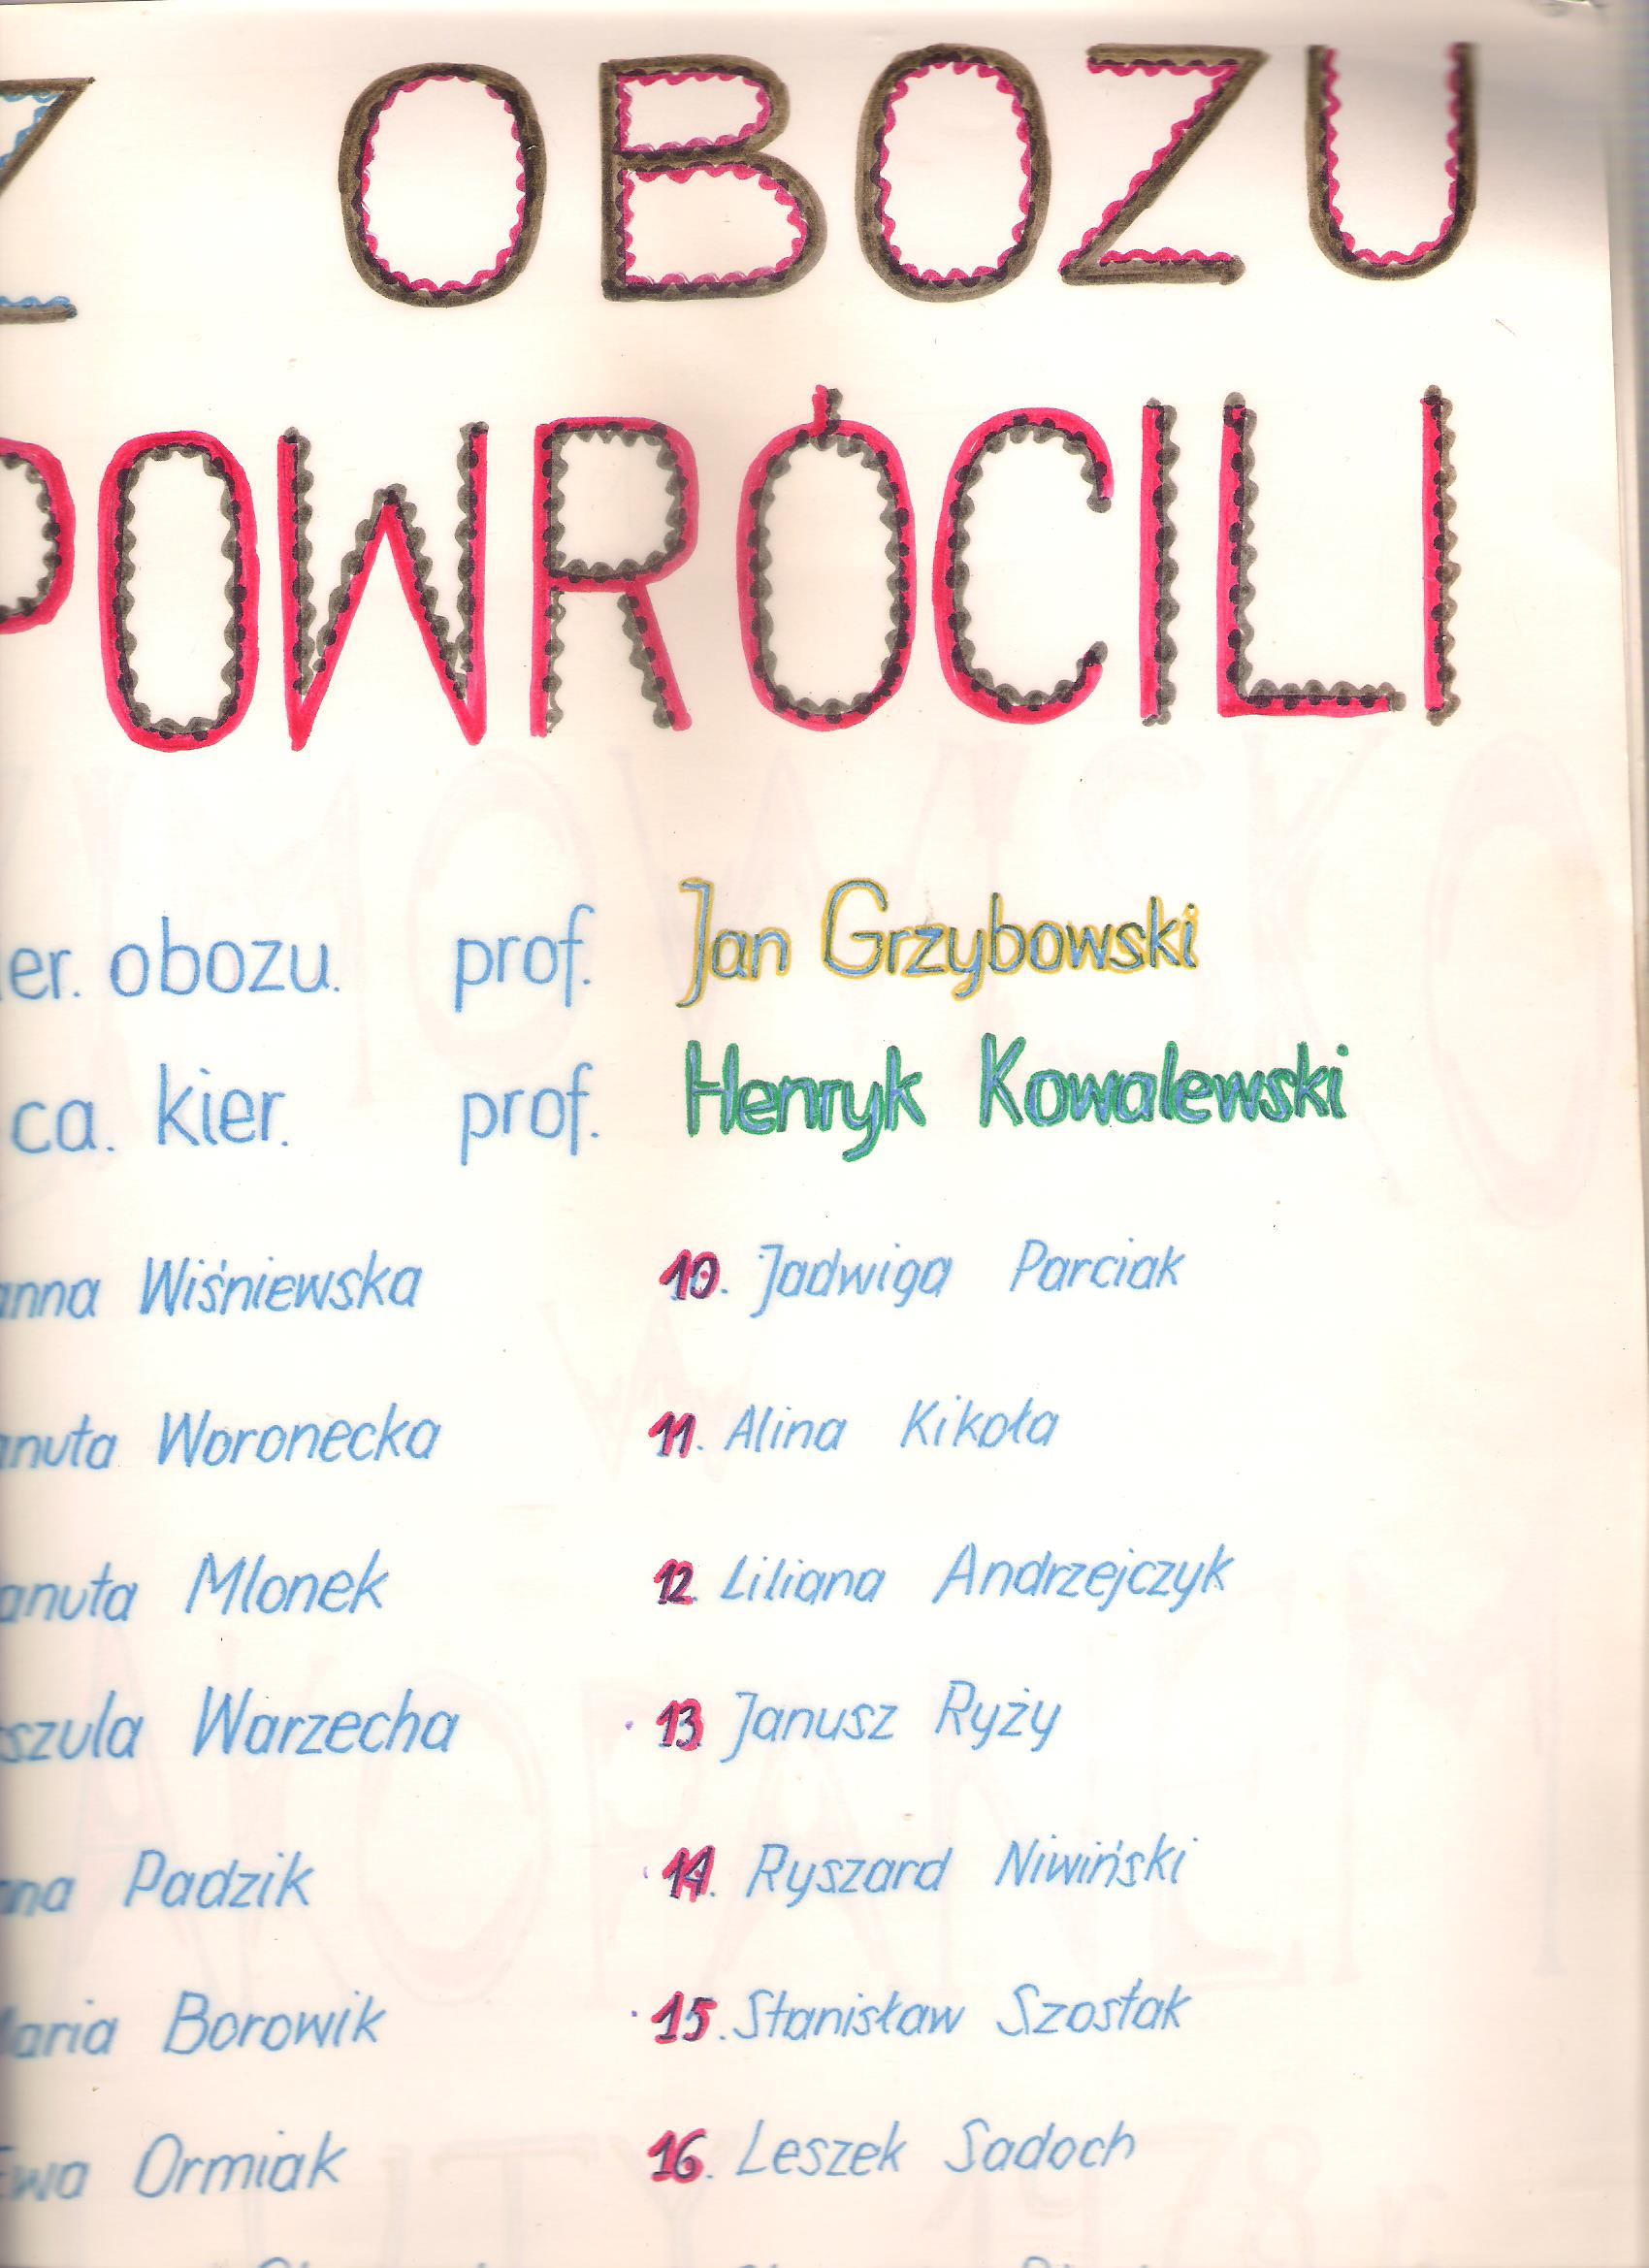 Z OBOZU
POWRÓCILI
er. obozu. prof. Jan Grzybowski
ca. kier. prof. Henryk Kowalewski
anna Wiśniewska 10. Jadwiga Parciak
anuta Woronecka 11. Alina Kikoła
anuta Mlonek 12. Liliana Andrzejczyk
szula Warzecha 13 Janusz Ryży
nna Padzik 14. Ryszard Niwiński
aria Borowik 15. Stanisław Szostak
Ewa Ormiak 16. Leszek Sadoch